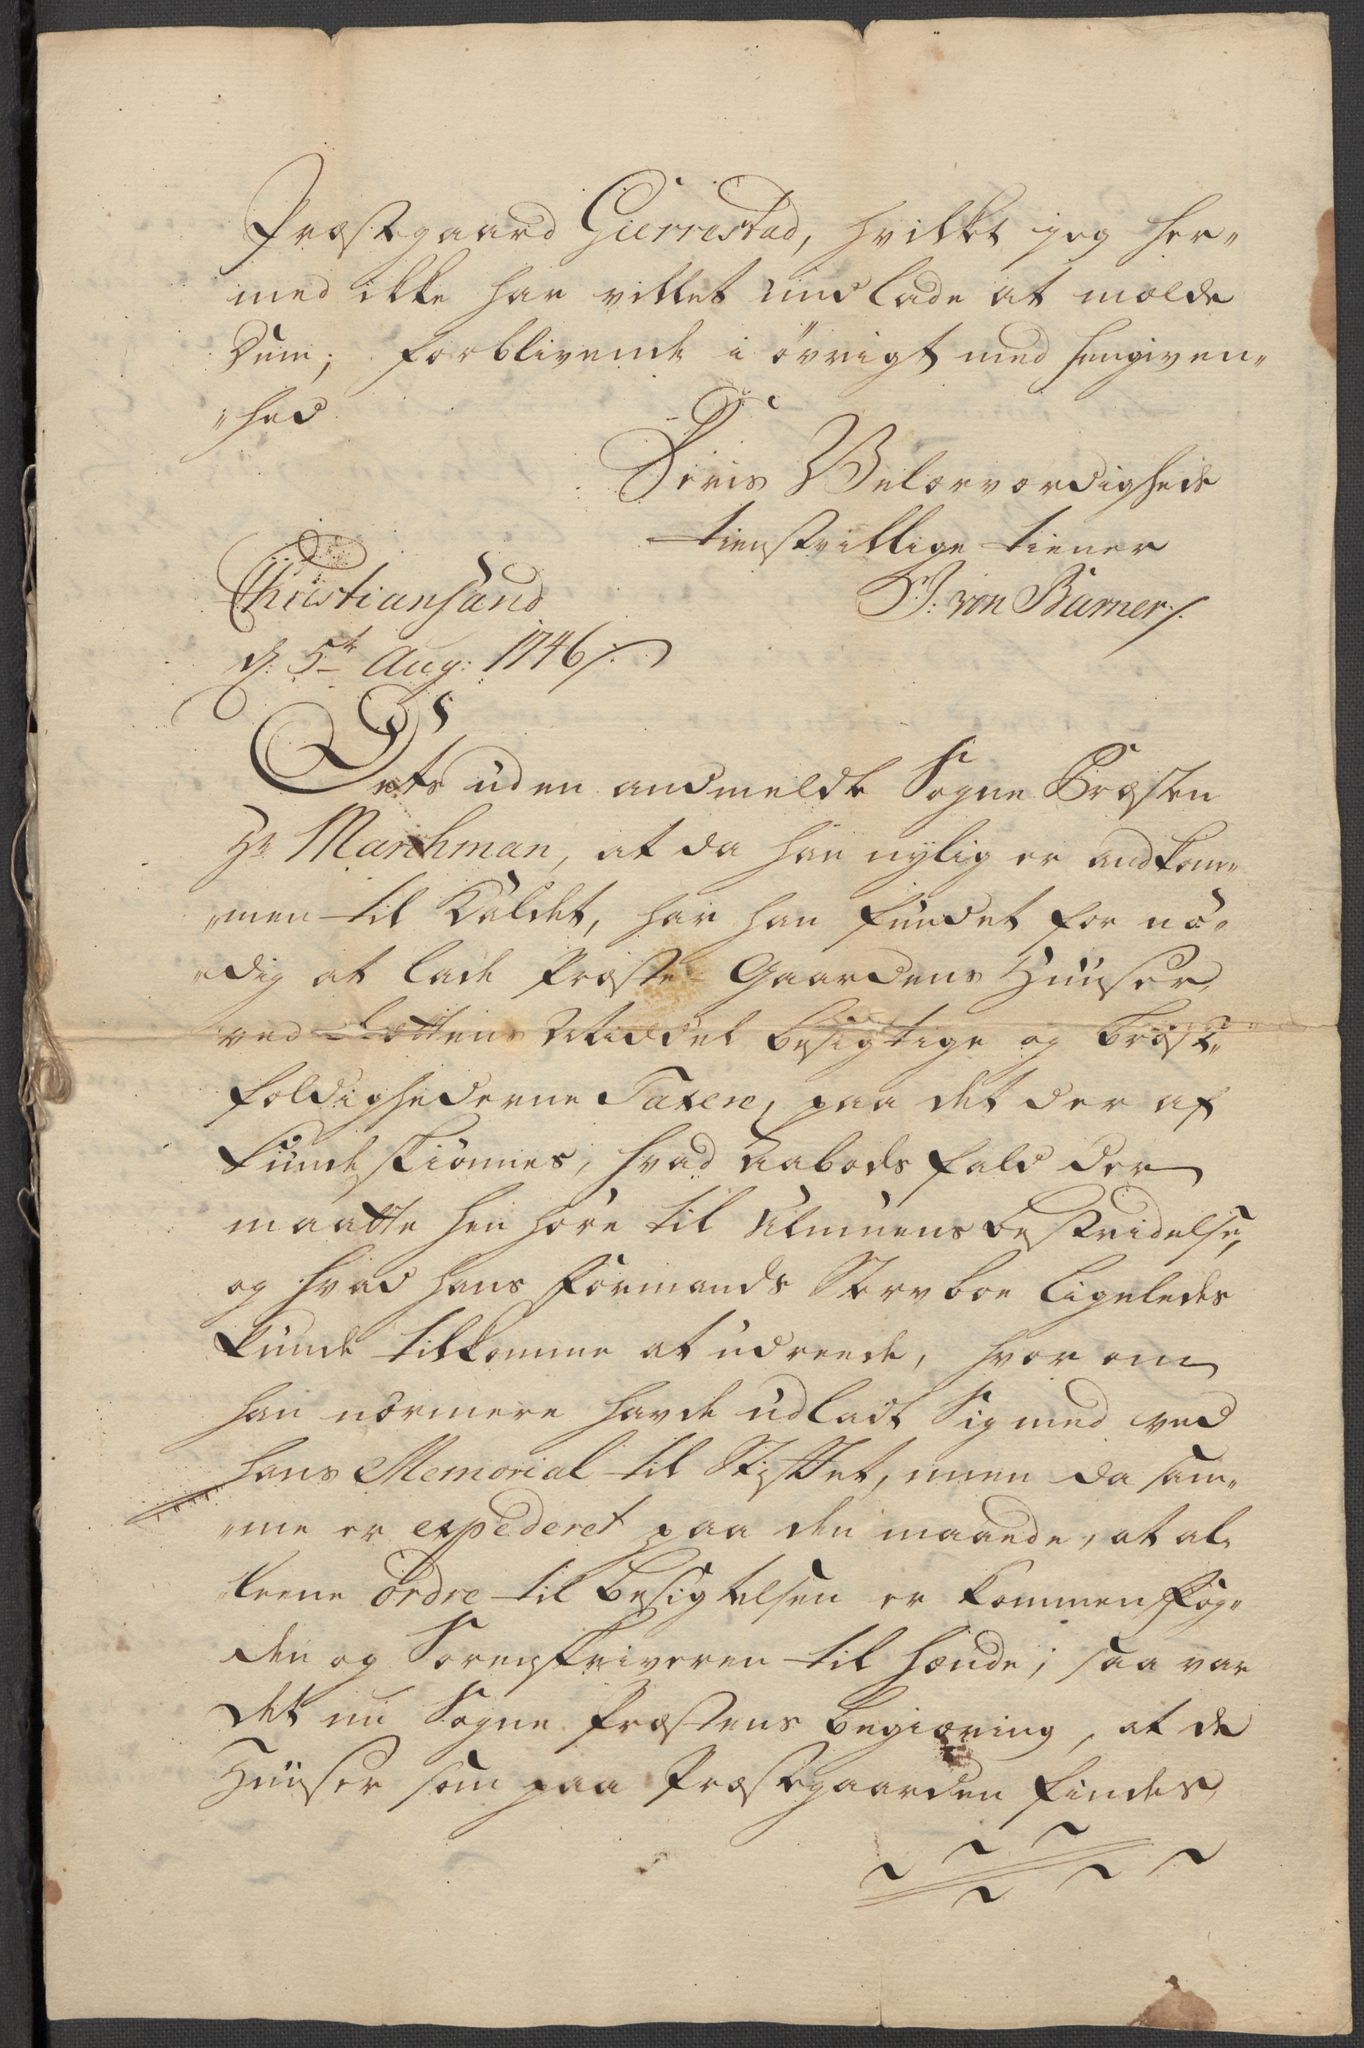 Præstegaard Gierrestad, hvilket jeg her-
med ikke har villet undlade at melde
Dem; forblivende i øvrigt med hengiven-
-hed
Deris Velærværdigheds
tienstvillige tiener
J: von Burner/.
Christiansand
d: 5te Aug: 1746/.
Dets uden andmeldte Sogne Præsten
Hr Marchman, at da han nylig er andkom-
-men til Kaldet, har han fundet for nø-
-dig at lade Præste Gaardens Huuser
ved Rettens Middel besigtige og brøst-
foldighederne Taxere, paa det der af
kunde skiønnes, hvad Aabods fald der
maatte hen høre til Almuens bestridelse,
og hvad hans Formands Sterboe ligeledes
kunde tilkomme at udreede, hvor om
han nærmere havde udladt Sig med ved
hans Memorial til Stiftet, men da sam-
-me er expederet paa den maade, at al-
-leene ordre til besigtelsen er kommen Fog-
den og Sorenskriveren til hænde; saa var
det nu Sogne Præstens begiæring, at de
Huuser som paa Præstegaarden findes